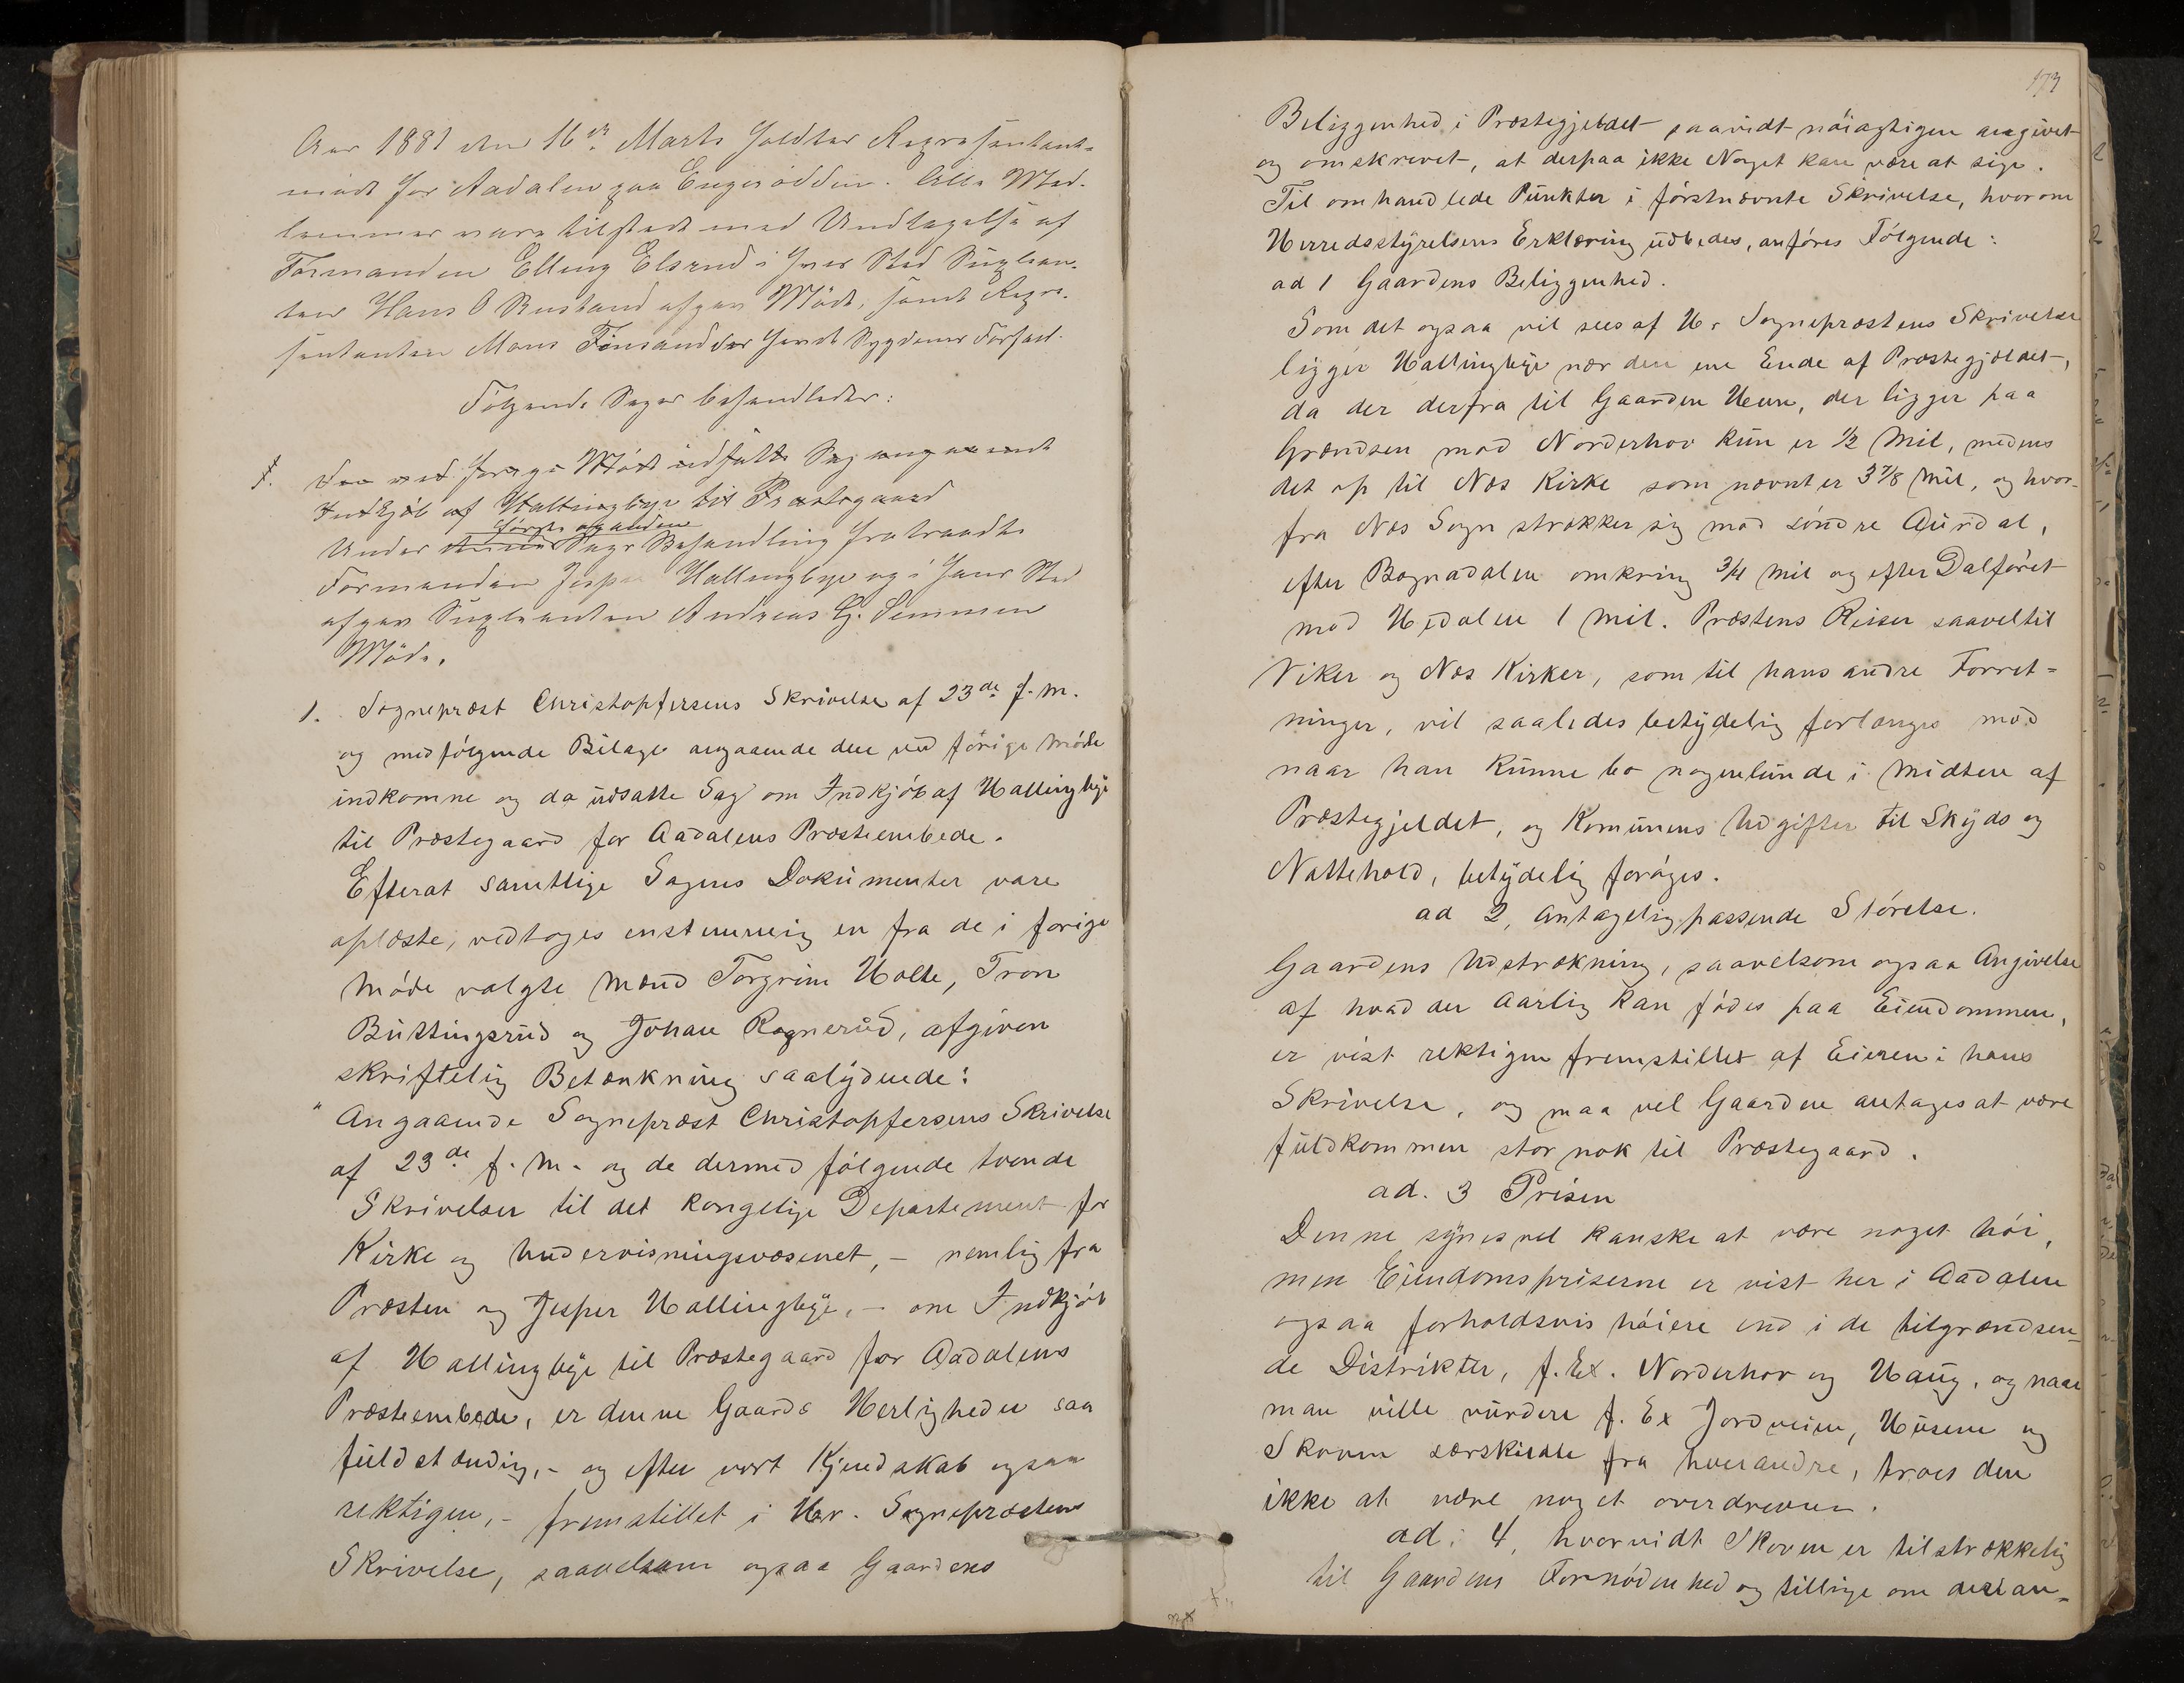 Aar 1881 den 16de Marts holdtes Repræsentant-
møde for Aadalen paa Engerodden. Alle Med-
lemmer vare tilstede med Undtagelse af
Formanden Elling Elsrud i hvis Sted Supplean-
ten Hans O Bustand afgav Møde, samt Repræ-
sentanten Mons Finsand der havde Sygdoms Forfald.
Følgende Sager behandledes:
1. Den ved forrige Møde udsatte Sag angaaende
Indkjøb af Hallingbye til Præstegaard
første og anden
Under denne Sags Behandling fratraadte
Formanden Jesper Hallingbye og i hans Sted
afgav Suppleanten Andreas G. Semmen
Møde.
1. Sognepræst Christophersens Skrivelse af 23de f. M.
og medfølgende Bilage angaaende den ved forige Møde
indkomne og da udsatte Sag om Indkjøb af Hallingbye
til Præstegaard for Aadalens Præsteembede.
Efterat samtlige Sagens Dokumenter vare
oplæste, vedtoges enstemmig en fra de i forige
Møde valgte Mænd Torgrim Holte, Tron
Buttingsrud og Johan Rognerud, afgiven
skriftelig Betænkning saalydende:
" Angaaende Sognepræst Christophersens Skrivelse
af 23de f. M. og de dermed følgende tvende
Skrivelser til det kongelige Departement for
Kirke og Undervisningsvæsenet, - nemlig fra
Præsten og Jesper Hallingbye, - om Indkjøb
af Hallingbye til Præstegaard for Aadalens
Præsteembede, er denne Gaards Herligheder saa
fuldstændig, - og efter vort Kjendskab ogsaa
rektigen, - fremstillet i Hr. Sognepræstens
Skrivelse, saavelsom ogsaa Gaardens
173
Beliggenhed i Præstegjeldet saavidt nøiagtigen angivet
og omskrevet, at derpaa ikke Noget kan være at sige.
Til omhandlede Punkter i førstnævnte Skrivelse, hvorom
Herredsstyrelsens Erklæring udbedes, anføres Følgende:
ad 1 Gaardens Beliggenhed.
Som det ogsaa vil sees af Hr Sognepræstens Skrivelse
ligger Hallingbye nær den ene Ende af Præstegjældet,
da der derfra til Gaarden Heen, der ligger paa
Grændsen mod Norderhov kun er 1/2 Mil, medens
det op til Næs Kirke som nævnt er 3 7/8 Mil, og hvor-
fra Næs Sogn strækker sig mod søndre Aurdal,
efter Bagnadalen omkring 3/4 Mil og efter Dalføret
mod Hedalen 1 Mil. Præstens Reiser saavel til
Viker og Næs Kirker, som til hans andre Forret-
ninger, vil saaledes betydelig forlænges mod
naar han kunne bo nogenlunde i Midten af
Præstegjeldet, og Kommunens Udgifter til Skyds og
Nattehold, betydelig forøges.
ad 2, antagelig passende Størelse.
Gaardens Udstrækning, saavelsom ogsaa Angivelse
af hvad der Aarlig kan fødes paa Eiendommen,
er vist rektigen fremstillet af Eieren i hans
Skrivelse, og maa vel Gaarden antages at være
fuldkommen stor nok til Præstegaard.
ad. 3 Prisen
Denne synes vel kanske at være noget høi,
men Eiendomspriserne er vist her i Aadalen
ogsaa forholdsvis høiere end i de tilgrændsen-
de Distrikter, f. Ex. Norderhov og Haug, og naar
man ville vurdere f. Ex Jordveien, Husene og
Skoven særskildte fra hverandre, troes den
ikke at være noget overdreven.
ad. 4, hvorvidt Skoven er tilstrækkelig
til Gaardens Fornødenhed og tillige om desl an-